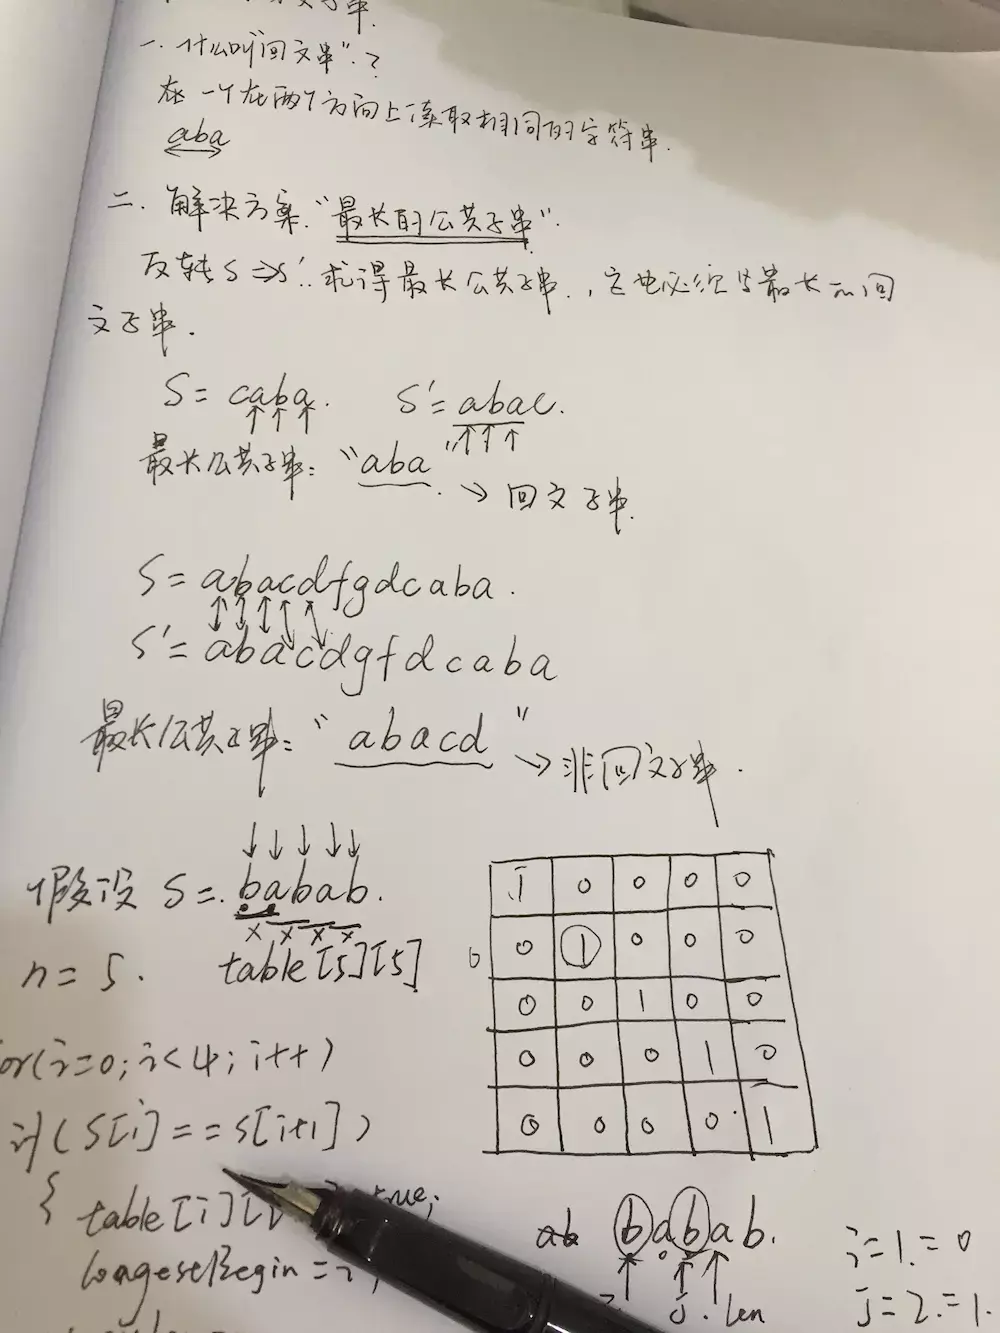 一. 什么叫"回文串"?
在一个在两个方向上读取相同的字符串.
aba
二. 解决方案"最长的公共子串".
反转S⇒S'. 求得最长公共子串, 它也必须是最长的回
文子串.
S = caba. S' = abac.
最长公共子串: "aba" → 回文子串.
S = abacdfgdcaba.
S' = abacdgfdcaba
最长公共子串: "abacd" → 非回文子串.
假设 S = babab.
n = 5. table[5][5]
1 0 0 0 0
0 1 0 0 0
0 0 1 0 0
0 0 0 1 0
0 0 0 0 1
for(i=0; i<4; i++)
if(S[i]==S[i+1])
{ table[i][ true;
longestBegin = i;
ab babab.
j. len
i=1.=0
j=2.=1.